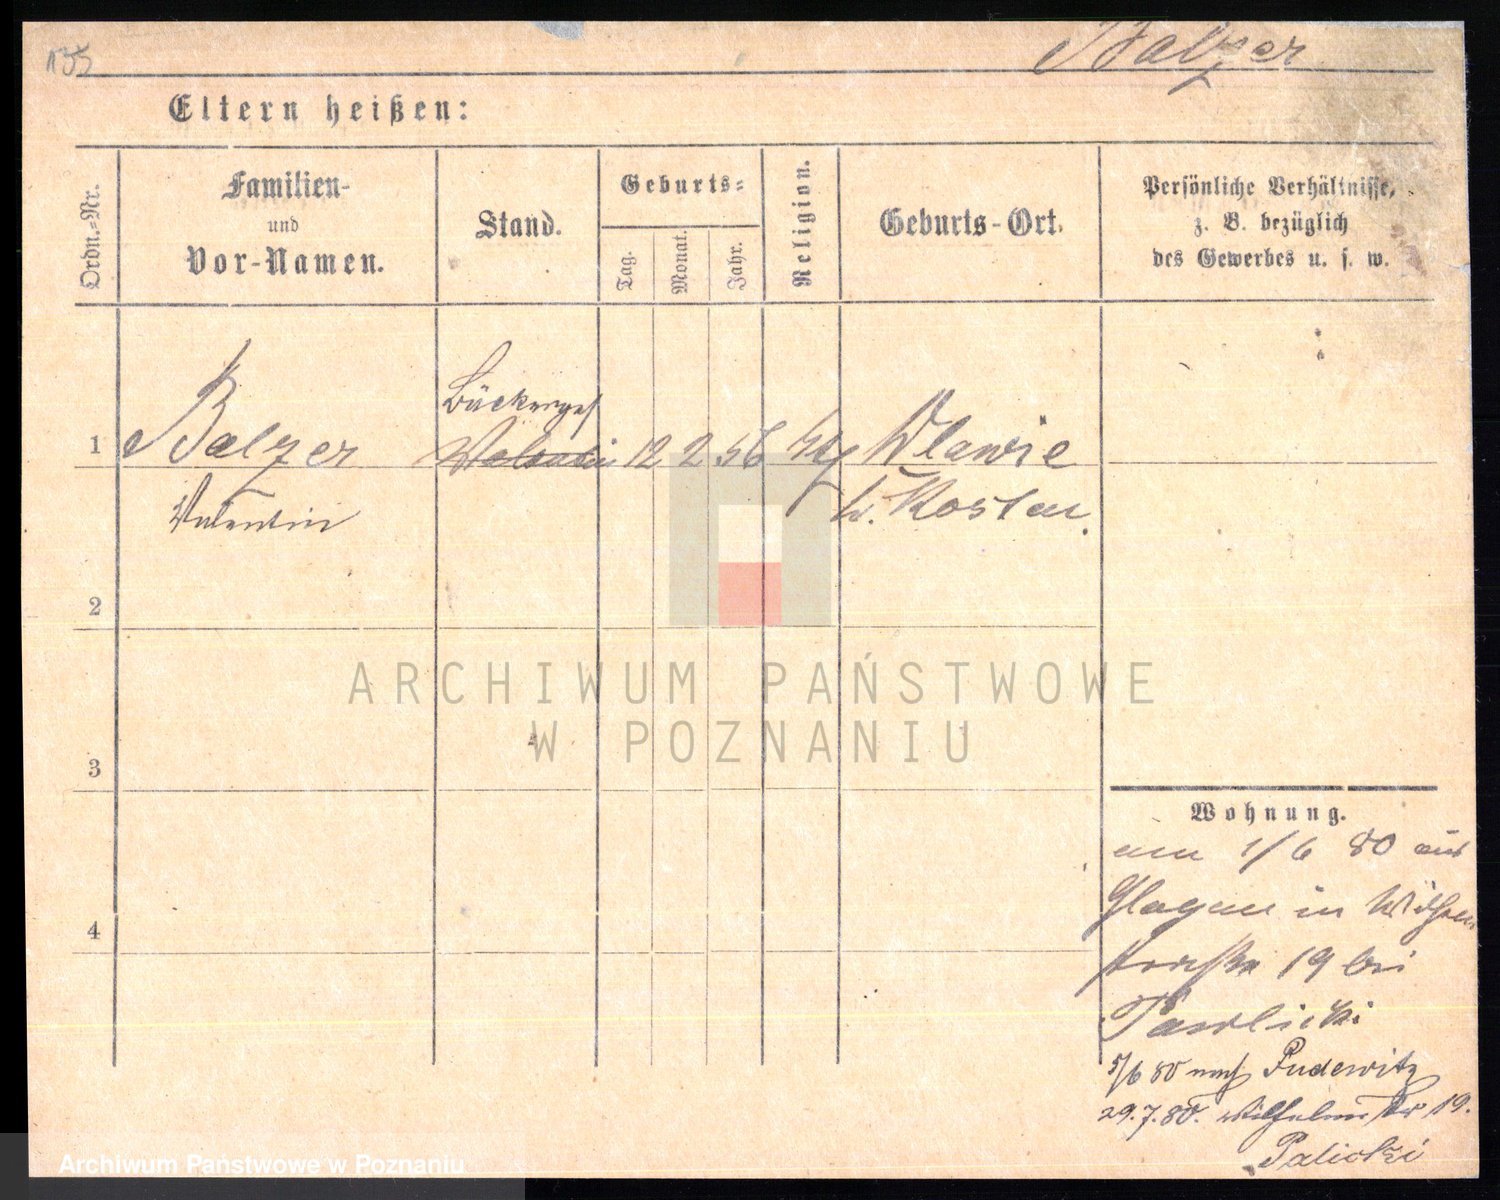 135
Balzer
Eltern heißen:
Ordn.-Nr.
Familien-
und
Vor-Namen.
Stand.
Geburts-
Tag.
Monat.
Jahr.
Religion.
Geburts-Ort.
Persönliche Verhältnisse,
z. B. bezüglich
des Gewerbes u. s. w.
1
Balzer
Valentin
Bäckerges
Valentin
12
2
56
Wlawie
Kr. Kosten.
2
3
4
ARCHIWUM PAŃSTWOWE
W POZNANIU
Wohnung.
am 1/6 80 aus
Glogau in Wilhelm
straße 19 bei
Pawlicki
5/6 80 nach Pudewitz
29.7.80. Wilhelmstr 19.
Palicki
Archiwum Państwowe w Poznaniu